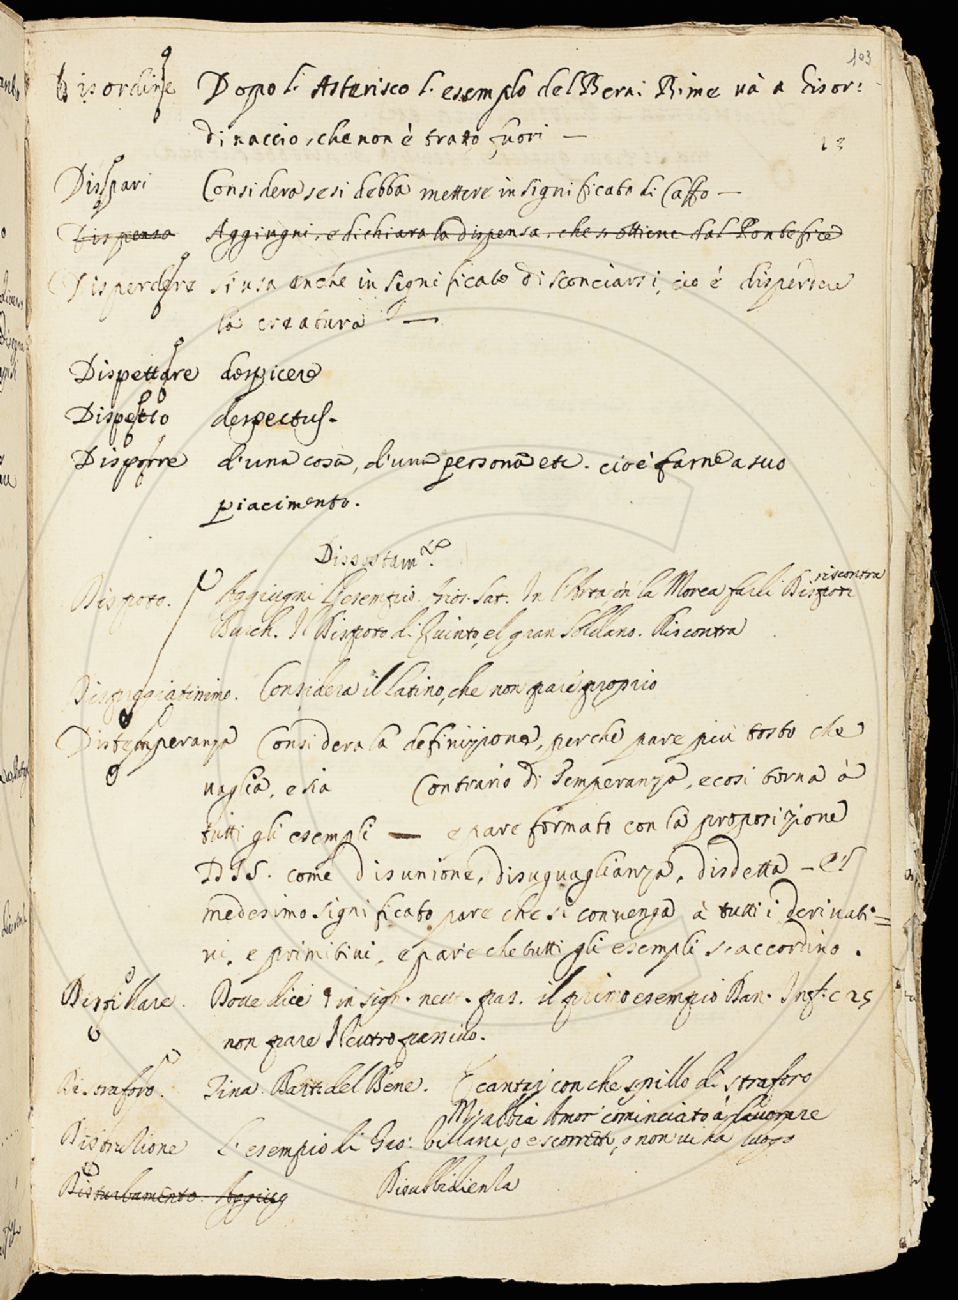 103
Disordine Dopo l. Asterisco l. esempio del Berni Rime và a Disor:
dinaccio, che non è tratto fuori —
13
Dispari Considera se si debba mettere in significato di Caffo —
Dispensa Aggiugni, e dichiara la dispensa, che s'ottiene dal Pontefice
Disperdere si usa anche in significato di sconciarsi, cio è disperdere
la creatura —
Dispettare despicere
Dispetto despectus.
Disporre d'una cosa, d'una persona etc. cioè farne a suo
piacimento.
Dispostam.te
riscontra
Dispoto. Aggiugni l'esempio. Arios. Sat. In l'Arta in la Morea farli Dispoti
Burch. Il Dispoto di Quinto, el gran Soldano. Riscontra
Dispregiatissimo. Considera il Latino, che non pare proprio
Distemperanza Considera la definizione, perche pare più tosto che
vaglia, e sia Contrario di Temperanza, e così torna à
tutti gli esempli — e pare formato con la proposizione
DIS. come disunione, disuguaglianza, disdetta — El
medesimo significato pare che si convenga à tutti i derivati=
vi, e primitivi, e pare che tutti gli esempli s'accordino.
Distillare. Dove dice in sign. neut. pas. il primo esempio Dan. Inf. c 25
non pare Neutro passivo.
Di straforo. Tina. Bart. del Bene. E cantai con che spillo di straforo
M'abbia Amor cominciato à lavorare
Distruzione L'esempio di Gio: Villani, o è scorretto, o non ve ha luogo
Disturbamento. Aggiug Disubbidienza